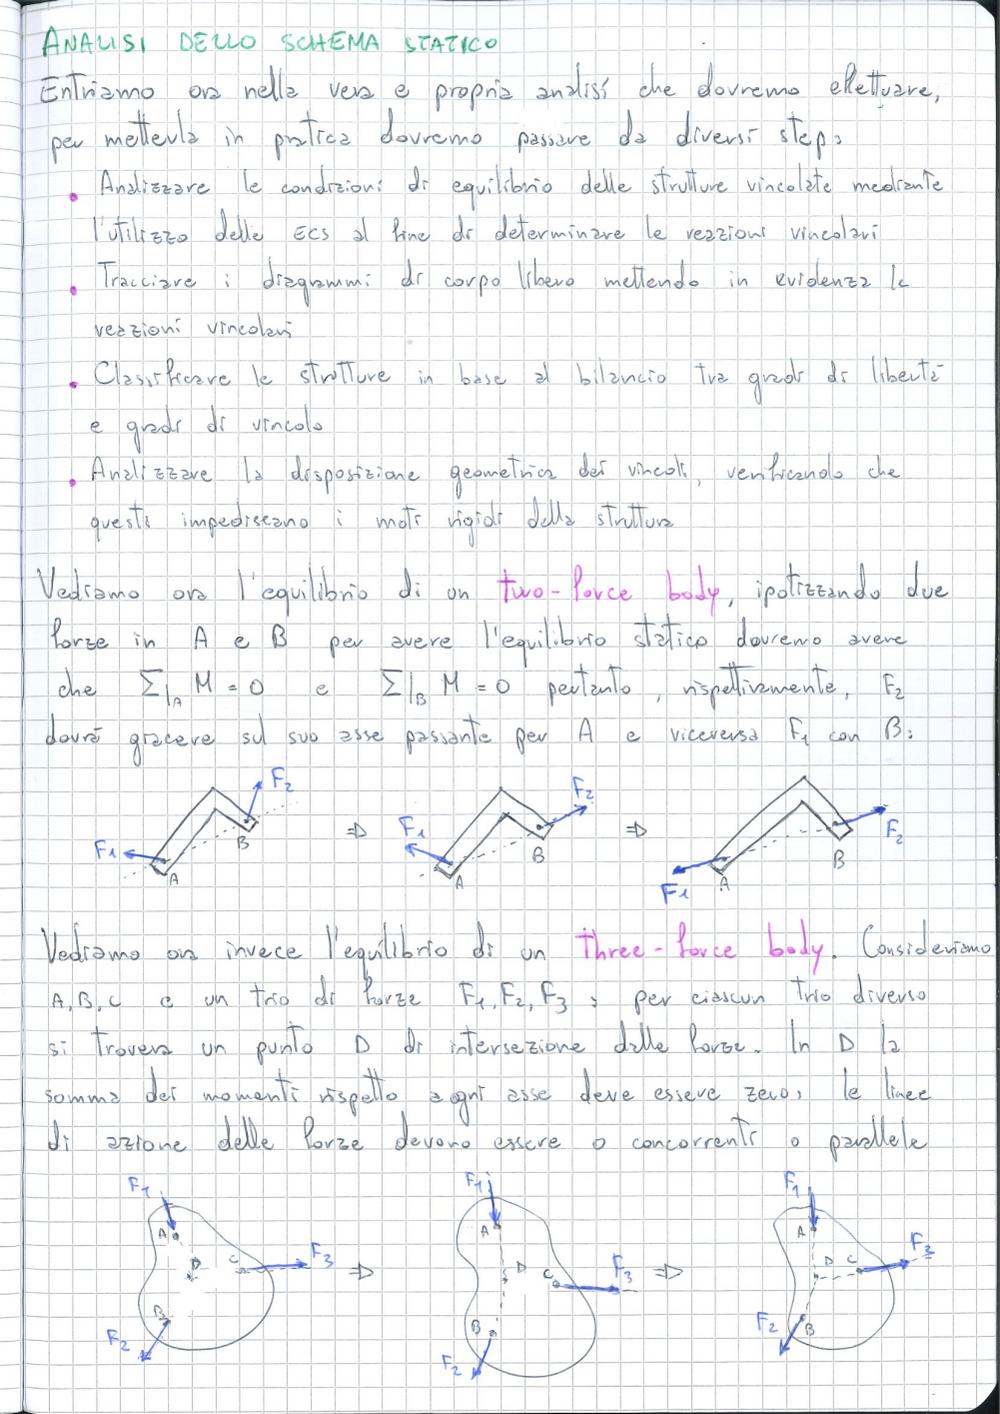 ANALISI DELLO SCHEMA STATICO
Entriamo ora nella vera e propria analisi che dovremo effettuare,
per metterla in pratica dovremo passare da diversi step:
• Analizzare le condizioni di equilibrio delle strutture vincolate mediante
l'utilizzo delle ECS al fine di determinare le reazioni vincolari
• Tracciare i diagrammi di corpo libero mettendo in evidenza le
reazioni vincolari
• Classificare le strutture in base al bilancio tra gradi di libertà
e gradi di vincolo
• Analizzare la disposizione geometrica dei vincoli, verificando che
questi impediscano i moti rigidi della struttura
Vediamo ora l'equilibrio di un two-force body, ipotizzando due
forze in A e B per avere l'equilibrio statico dovremo avere
che Σ|A M = 0 e Σ|B M = 0 pertanto, rispettivamente, F2
dovrà giacere sul suo asse passante per A e viceversa F1 con B:
F1 A B F2 ⇒ F1 A B F2 ⇒ F1 A B F2
Vediamo ora invece l'equilibrio di un three-force body. Consideriamo
A, B, C e un trio di forze F1, F2, F3; per ciascun trio diverso
si troverà un punto D di intersezione delle forze. In D la
somma dei momenti rispetto a ogni asse deve essere zero, le linee
di azione delle forze devono essere o concorrenti o parallele
F1 A D C F3 B F2 ⇒ F1 A D C F3 B F2 ⇒ F1 A D C F3 B F2